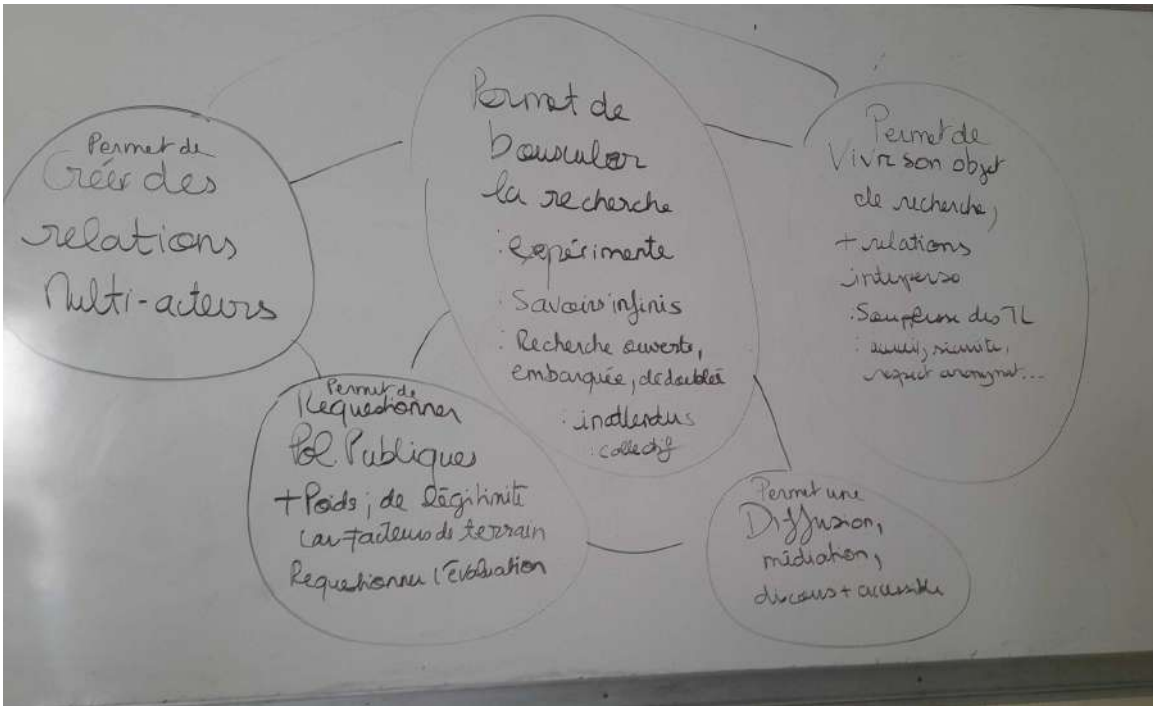 Permet de
Créer des
relations
Multi-acteurs
Permet de
bousculer
la recherche
: expérimente
: Savoirs infinis
: Recherche ouverte,
embarquée, dédoublée
: inattendus
: collectif
Permet de
Vivre son objet
de recherche,
+ relations
interperso
: Souplesse des TL
: accueil, sécurité,
respect anonymat...
Permet de
Requestionner
Pol. Publiques
+ Poids, de légitimité
car ≠ acteurs de terrain
Requestionner l'évaluation
Permet une
Diffusion,
médiation,
discours + accessible